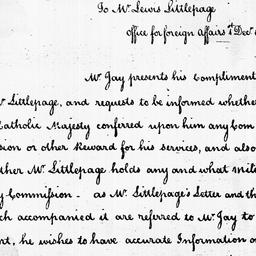 To Mr. Lewis Littlepage
Office for foreign Affairs 1st Decr.
Mr. Jay presents his Compliment
Littlepage, and requests to be informed whether
Catholic Majesty conferred upon him any Com
sion or other Reward for his services, and also
ther Mr. Littlepage holds any and what mili
y Commission - as Mr. Littlepage's Letter and th
ch accompanied it are referred to Mr. Jay to
t, he wishes to have accurate Information o